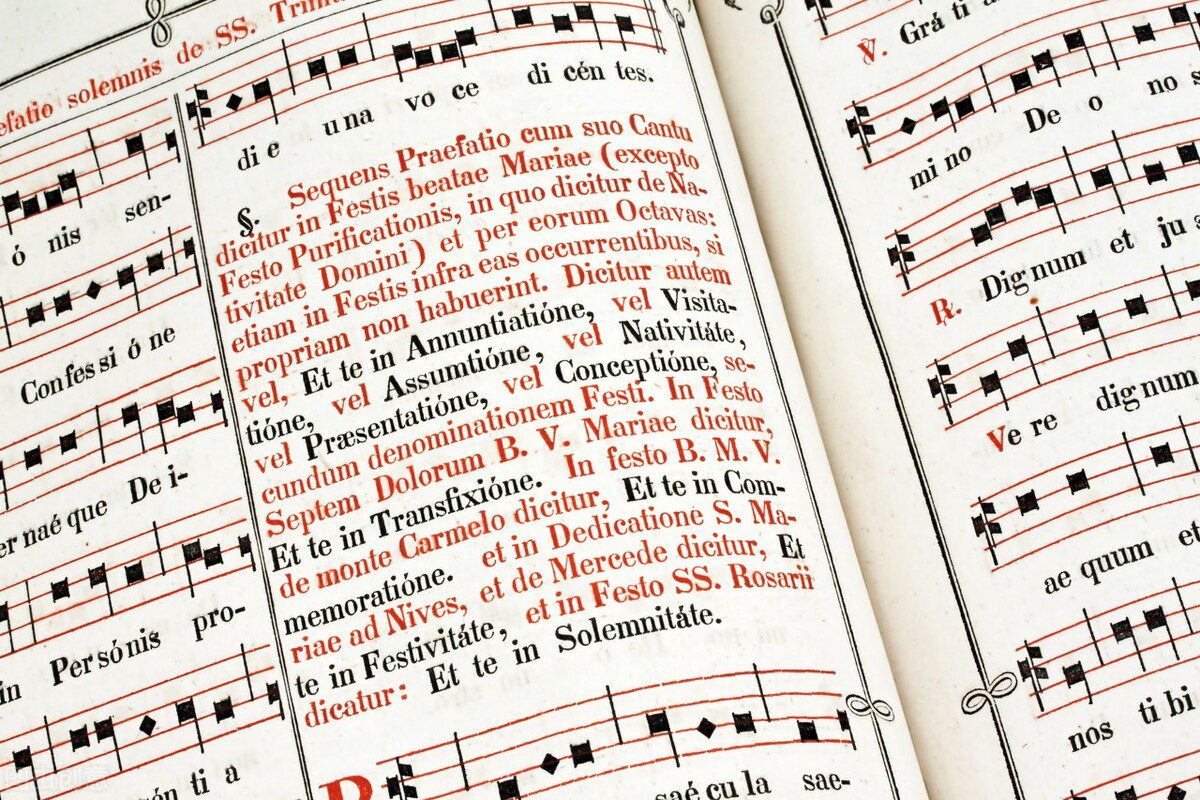 solemnis de SS.
ó nis sen-
Confes si ó ne
naé que De i-
in Per só nis pro-
ti a
di e una vo ce di cén tes.
§. Sequens Praefatio cum suo Cantu
dicitur in Festis beatae Mariae (excepto
Festo Purificationis, in quo dicitur de Na-
tivitate Domini) et per eorum Octavas:
etiam in Festis infra eas occurrentibus, si
propriam non habuerint. Dicitur autem
vel, Et te in Annuntiatióne, vel Visita-
tióne, vel Assumtióne, vel Nativitáte,
vel Præsentatióne, vel Conceptióne, se-
cundum denominationem Festi. In Festo
Septem Dolorum B. V. Mariae dicitur,
Et te in Transfixióne. In festo B. M. V.
de monte Carmelo dicitur, Et te in Com-
memoratióne. et in Dedicatione S. Ma-
riae ad Nives, et de Mercede dicitur, Et
te in Festivitáte, et in Festo SS. Rosarii
dicatur: Et te in Solemnitáte.
saé cu la sae-
V. Grá ti a
mi no De o no s
R. Dig num et ju
Ve re dig num
ae quum et
nos ti bi